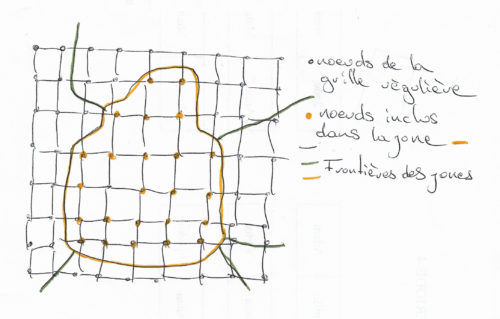 noeuds de la
grille régulière
noeuds inclus
dans la zone
Frontières des zones